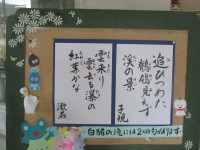 追ひつめた
鶺鴒見えず
渓の景
子規
雲来り
雲去る瀑の
紅葉かな
漱石
白猪の滝には2つの句があります